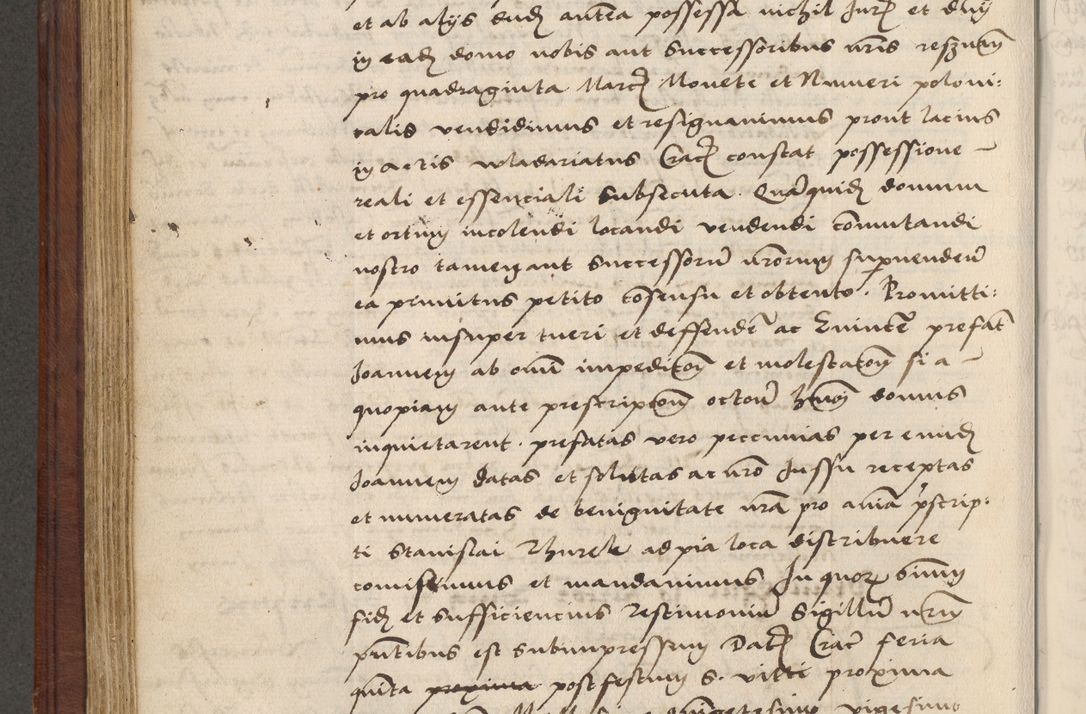 et ab alijs eudẽ antea possessa nichil Jurẽ et dnij
in eadẽ domo nobis aut Successoribus nr̃is reszuan̄
pro quadraginta Marcẽ Monete et Numeri poloni:
calis vendidimus et resignauimus prout lacius
in actis wladariatus Cracẽ constat possessione –
reali et essenciali subsecuta. Quãquidẽ domum
et ortum incolendi locandi vendendi cõmutandi
nostro tamen aut Successorũ nr̃orum superuendeñ
ea primitus petito cõsensu et obtento. Promitti:
mus insuper tueri et deffendẽ ac Euincẽ prefatũ
Joannem ab omi impeditõe et molestatõe si a –
quopiam ante prescriptõem domus
inquietarent. prefatas vero peccunias per eundẽ
Joannem datas et solutas ac nr̃o Jussu receptas
et numeratas de benignitate nr̃a pro aĩa prescrip:
ti Stanislai Thurek ad pia loca distribuere
comisimus et mandauimus Jn quorẽ oĩum
fidẽ et sufficiencius Testimoniũ Sigillũ nr̃um
pñtibus est subimpressum Datẽ Cracẽ feria
quita proxima post festum S. viti proxima
vigesimo